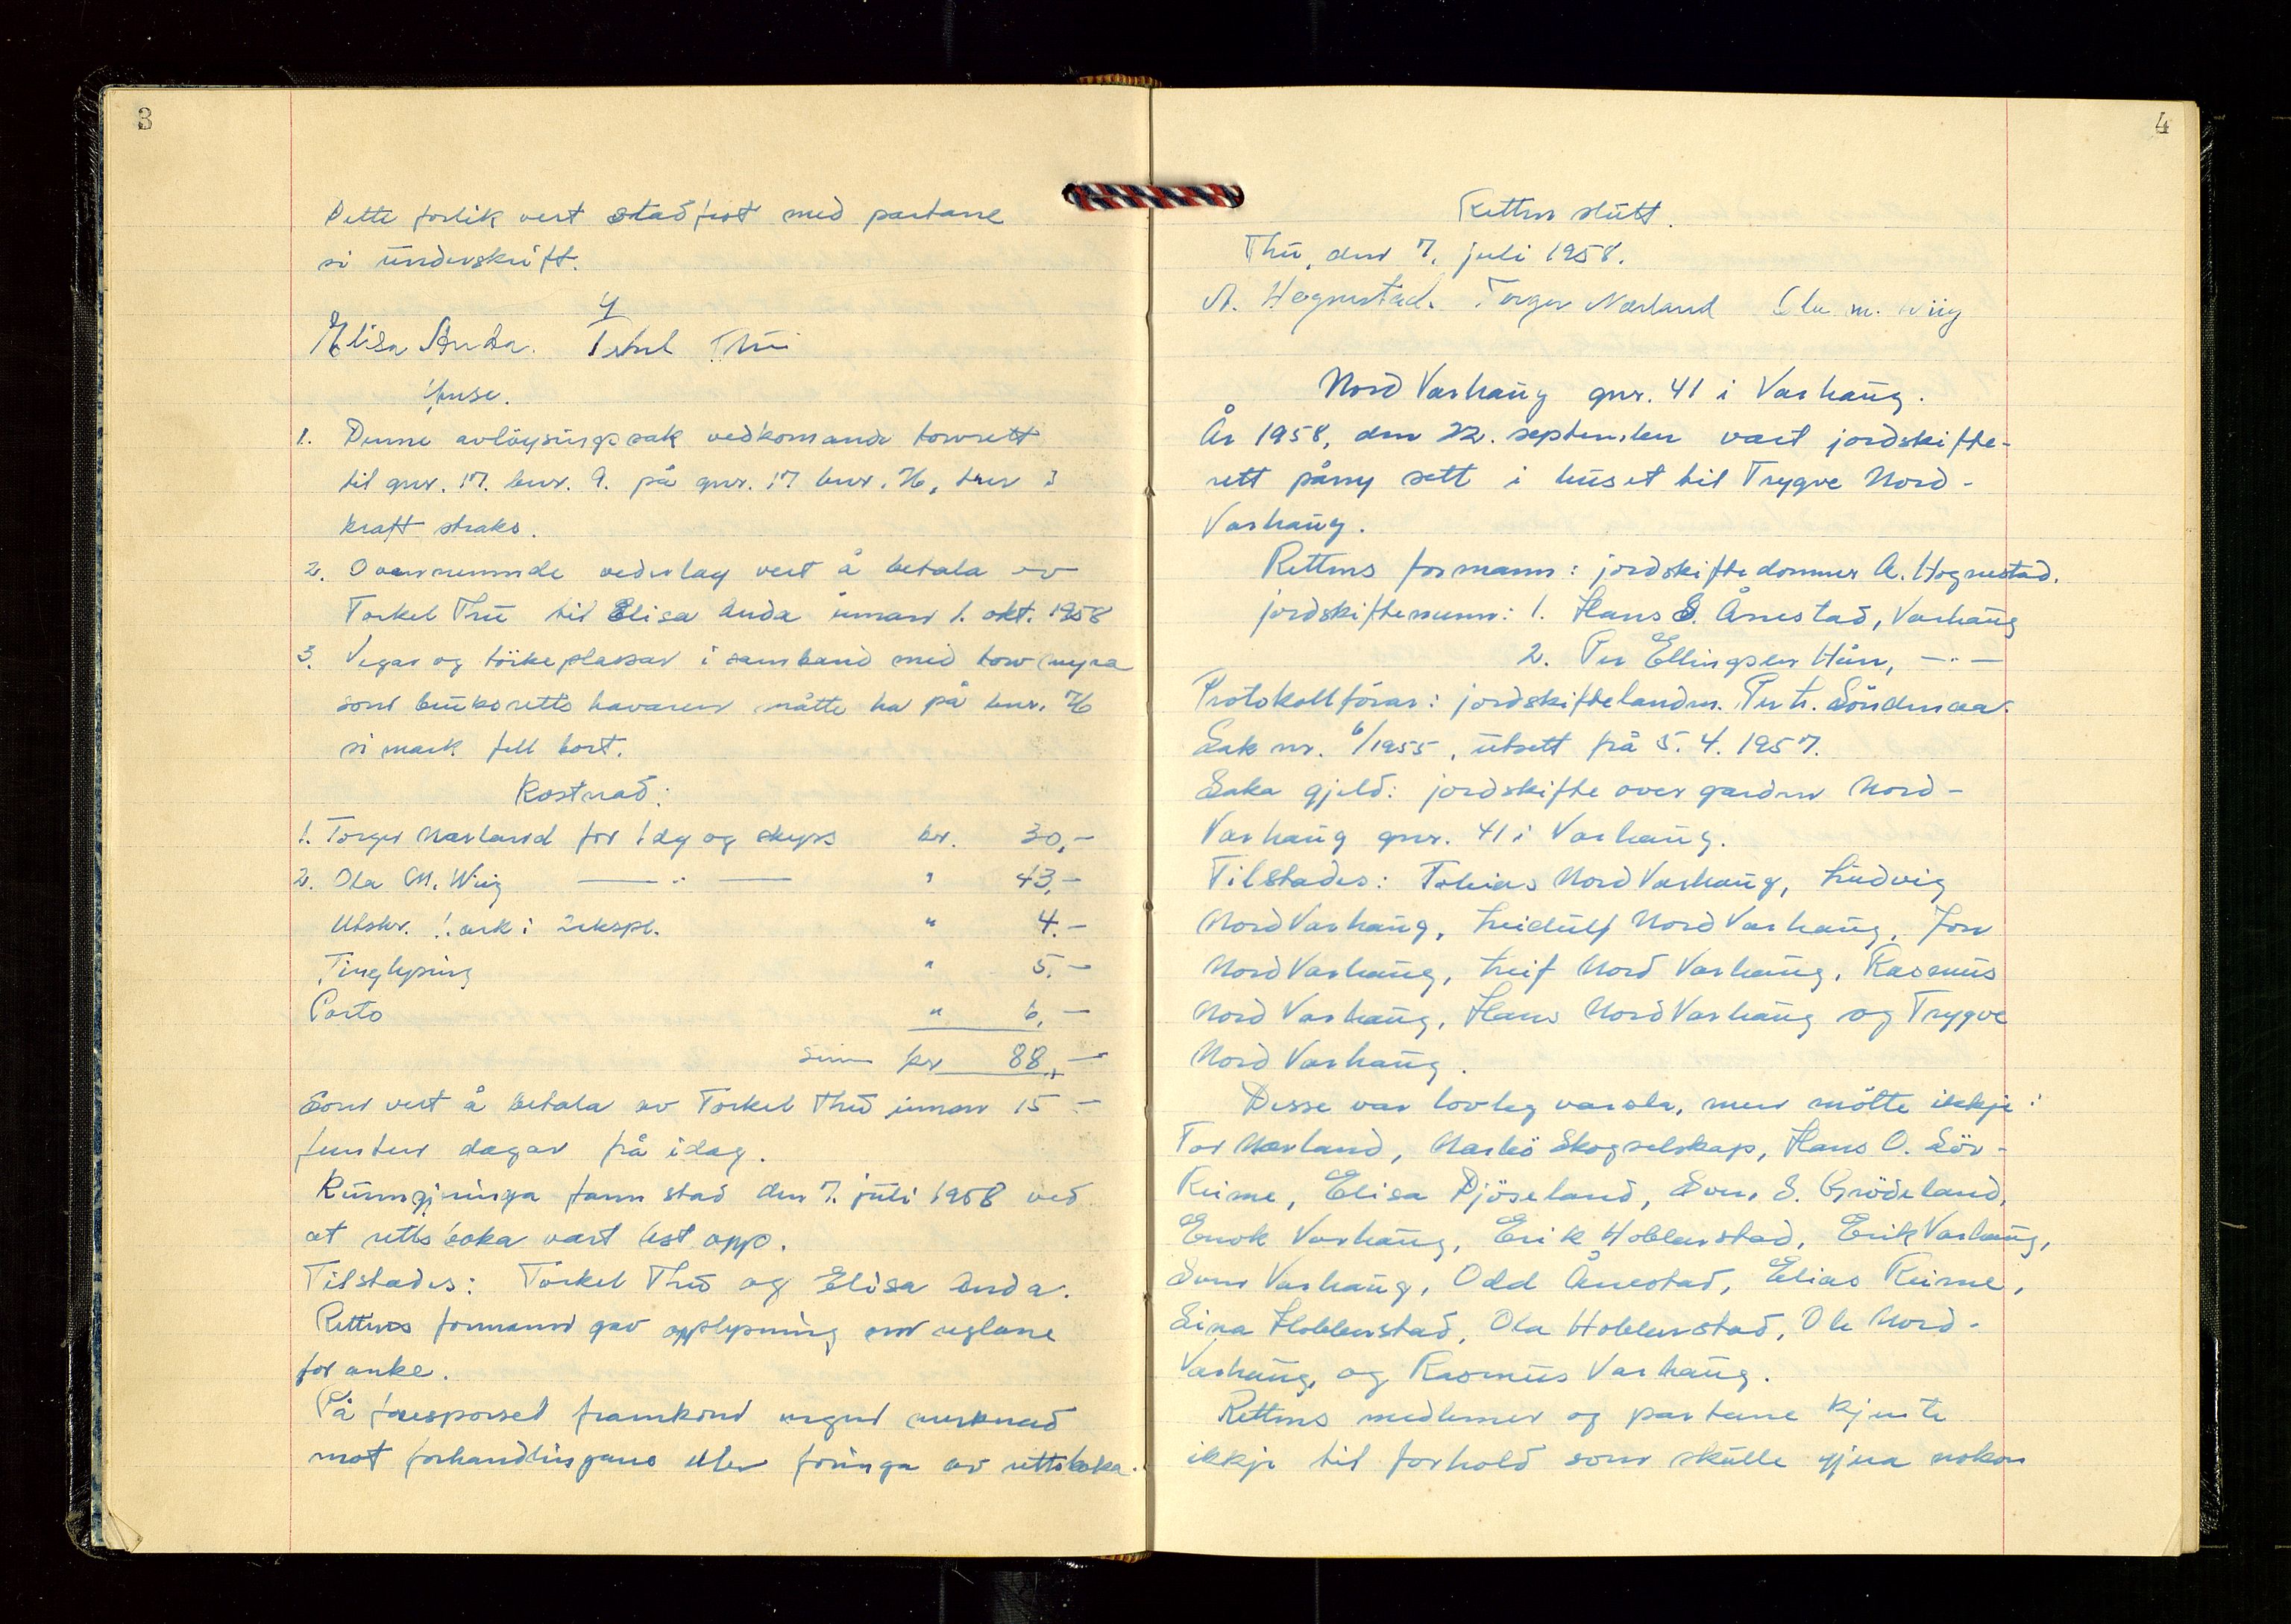 3
Dette forlik vert stadfest med partane
si underskrift.
Elisa Anda. Torkel Thu
1. Denne avlöysingssak vedkomande torvrett
til gnr. 17. bnr. 9. på gnr. 17 bnr. 76, trer i
kraft straks.
2. Ovannemnde vederlag vert å betala av
Torkel Thu til Elisa Anda innan 1. okt. 1958
3. Vegar og törkeplassar i samband med torvmyra
som bruksrettshavaren måtte ha på bnr. 76
si mark fell bort.
Kostnad:
1. Torger Nærland for 1 dg og skyss kr. 30,-
2. Ola M. Wiig — " — " 43,-
Utskr. 1 ark i 2 ekspl. " 4.-
Tinglysing " 5.-
Porto " 6,-
Sum kr 88,-
Som vert å betala av Torkel Thu innan 15 -
femten dagar frå idag.
Kunngjeringa fann stad den 7. juli 1958 ved
at rettsboka vart lest opp.
Tilstades: Torkel Thu og Elisa Anda.
Rettens formann gav opplysning om reglane
for anke.
På forespørsel framkom ingen merknad
mot forhandlingane eller föringa av rettsboka.
4
Retten slutt.
Thu, den 7. juli 1958.
A. Hognestad. Torger Nærland Ola M. Wiig
Nord Varhaug gnr. 41 i Varhaug.
År 1958, den 22. september vart jordskifte-
rett påny sett i huset til Trygve Nord-
Varhaug.
Rettens formann: jordskiftedommer A. Hognestad.
jordskiftemenn: 1. Hans S. Ånestad, Varhaug
2. Per Ellingsen Hån, — " —
Protokollförar: jordskiftelandm. Per h. Söndenaa.
Sak nr. 6/1955, utsett frå 5. 4. 1957.
Saka gjeld: jordskifte over garden Nord-
Varhaug gnr. 41 i Varhaug.
Tilstades: Tobias Nord Varhaug, Ludvig
Nord Varhaug, Leidulf Nord Varhaug, Jon
Nord Varhaug, Leif Nord Varhaug, Rasmus
Nord Varhaug, Hans Nord Varhaug og Trygve
Nord Varhaug.
Desse var lovleg varsla, men mötte ikkje:
Tor Nærland, Nærbö Skogselskap, Hans O. Sör-
Reime, Elisa Djöseland, Sven S. Grödeland,
Enok Varhaug, Erik Hobberstad, Erik Varhaug,
Sven Varhaug, Odd Ånestad, Elias Reime,
Sina Hobberstad, Ola Hobberstad, Ole Nord-
Varhaug, og Rasmus Varhaug.
Rettens medlemer og partane kjente
ikkje til forhold som skulle gjera nokon